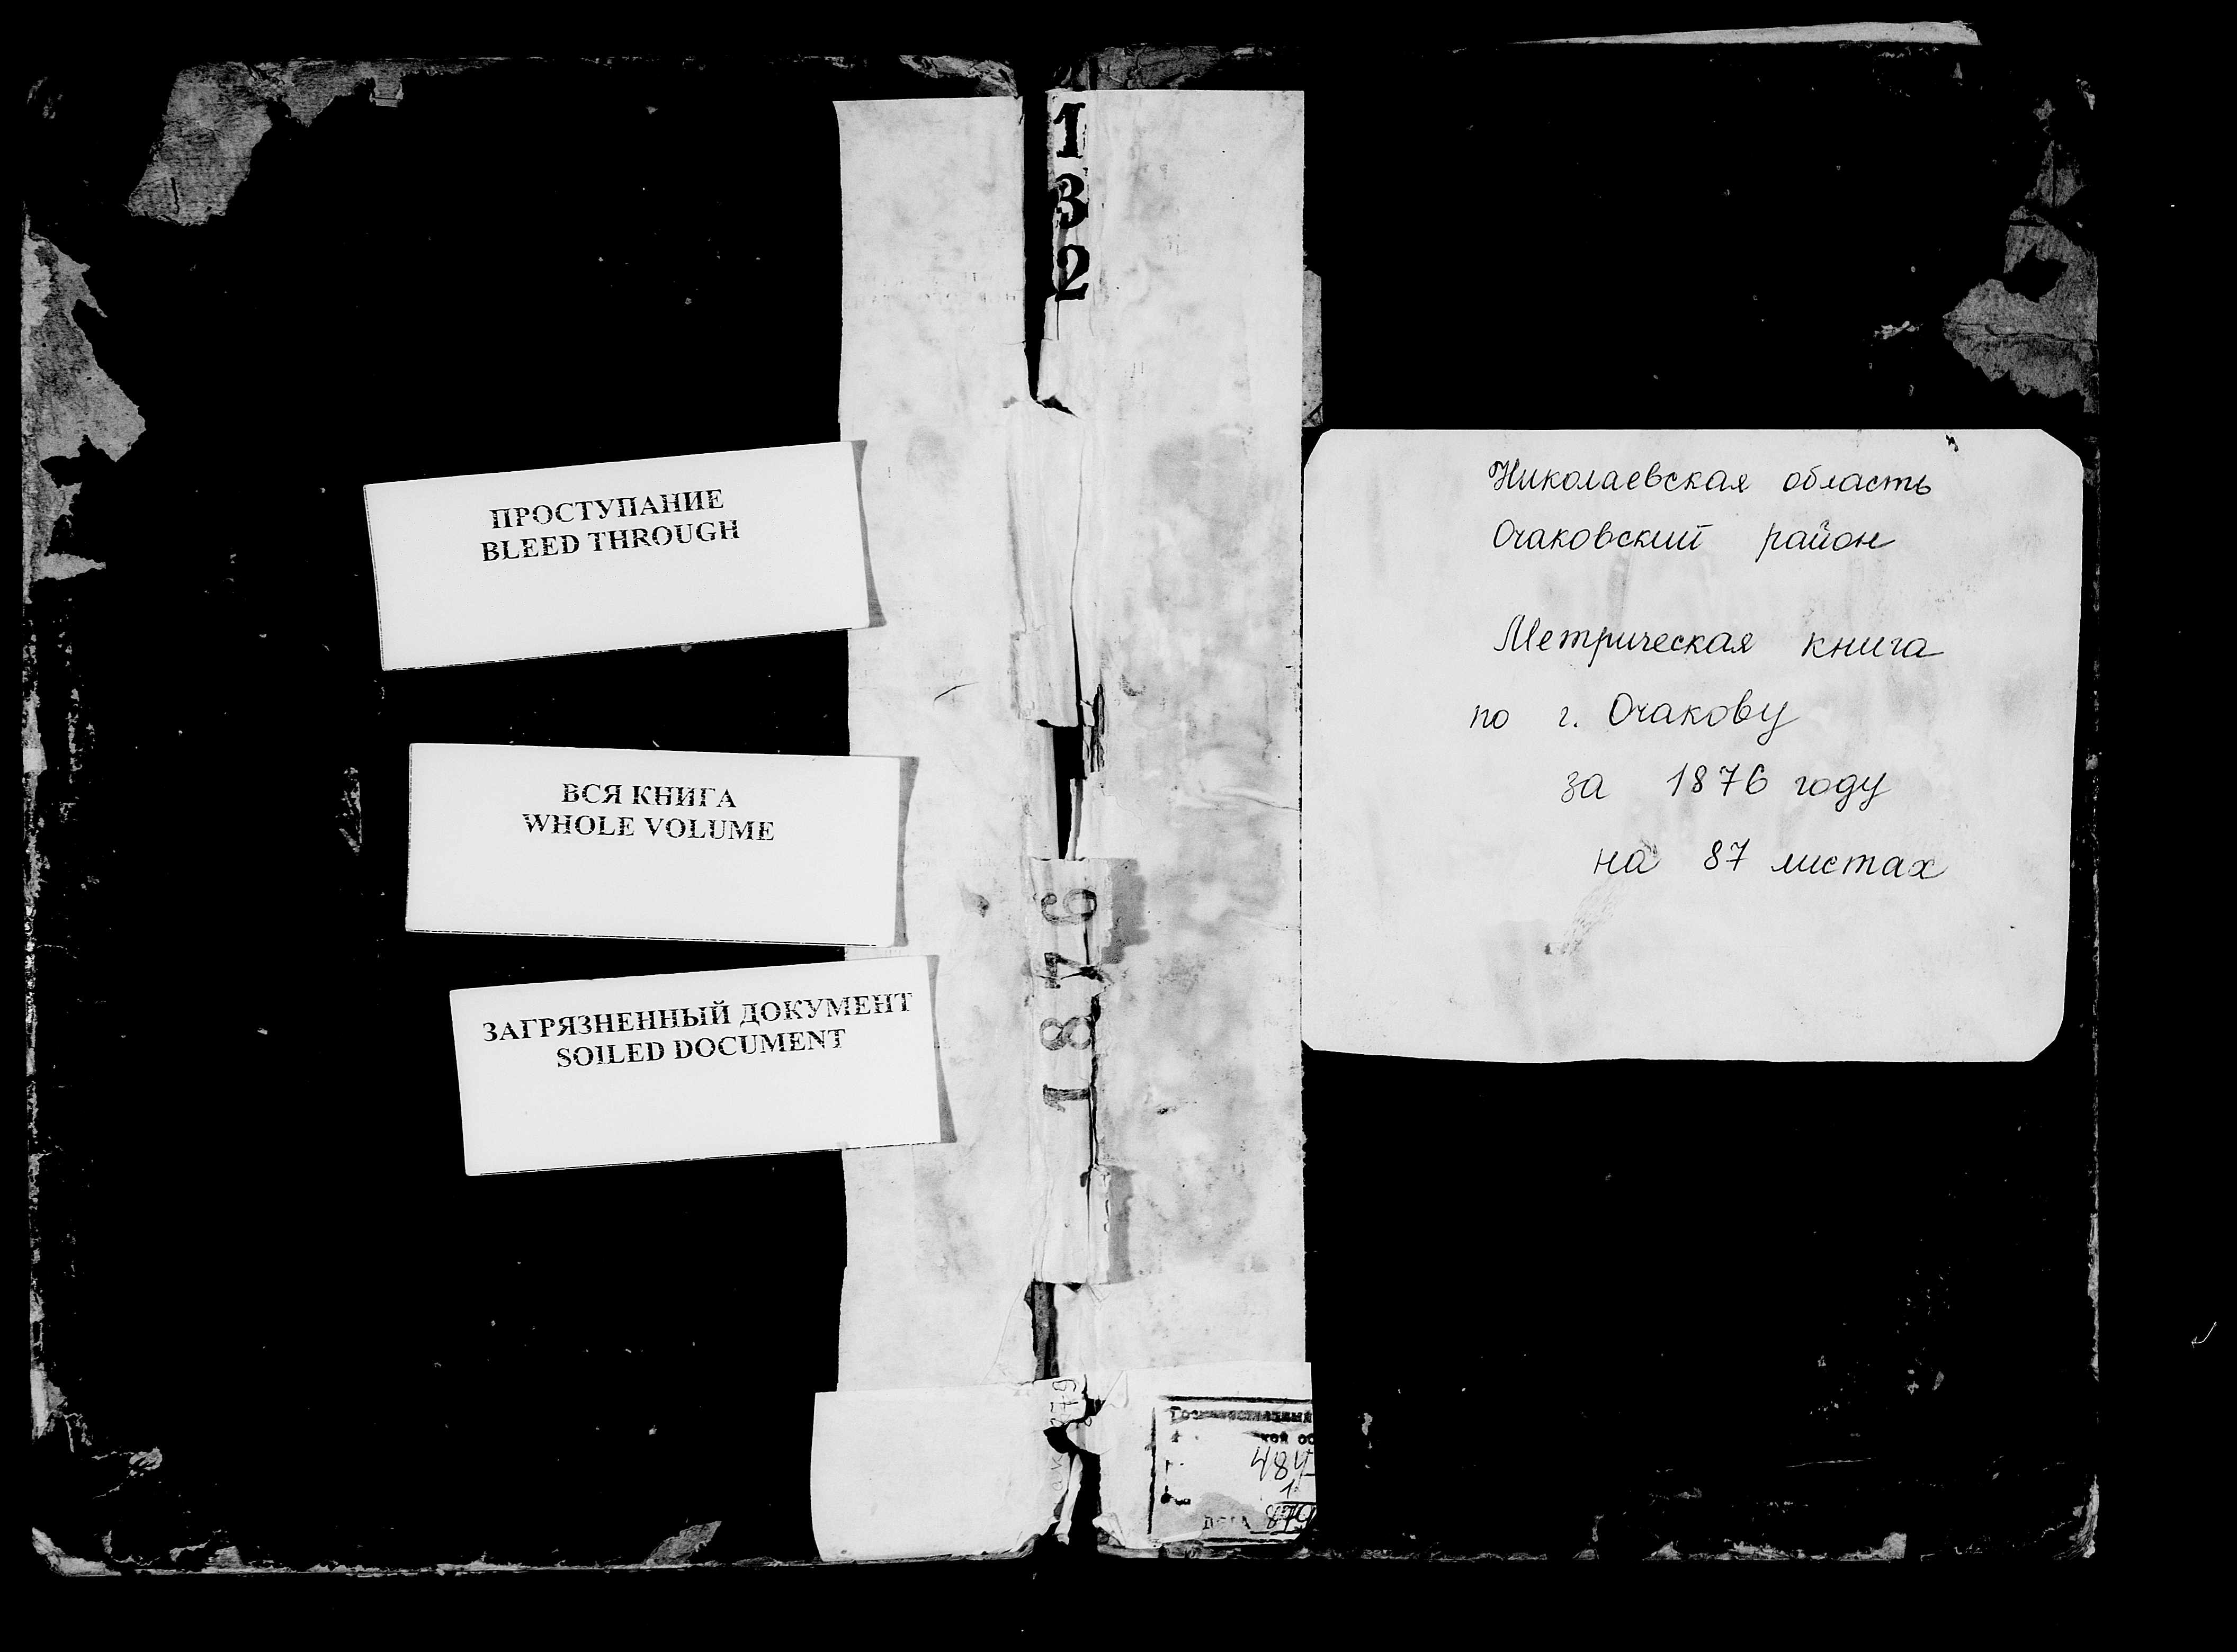 132
ПРОСТУПАНИЕ
BLEED THROUGH
ВСЯ КНИГА
WHOLE VOLUME
ЗАГРЯЗНЕННЫЙ ДОКУМЕНТ
SOILED DOCUMENT
1876
Николаевская область
Очаковский район
Метрическая книга
по г. Очакову
за 1876 году
на 87 листах
484
1
879